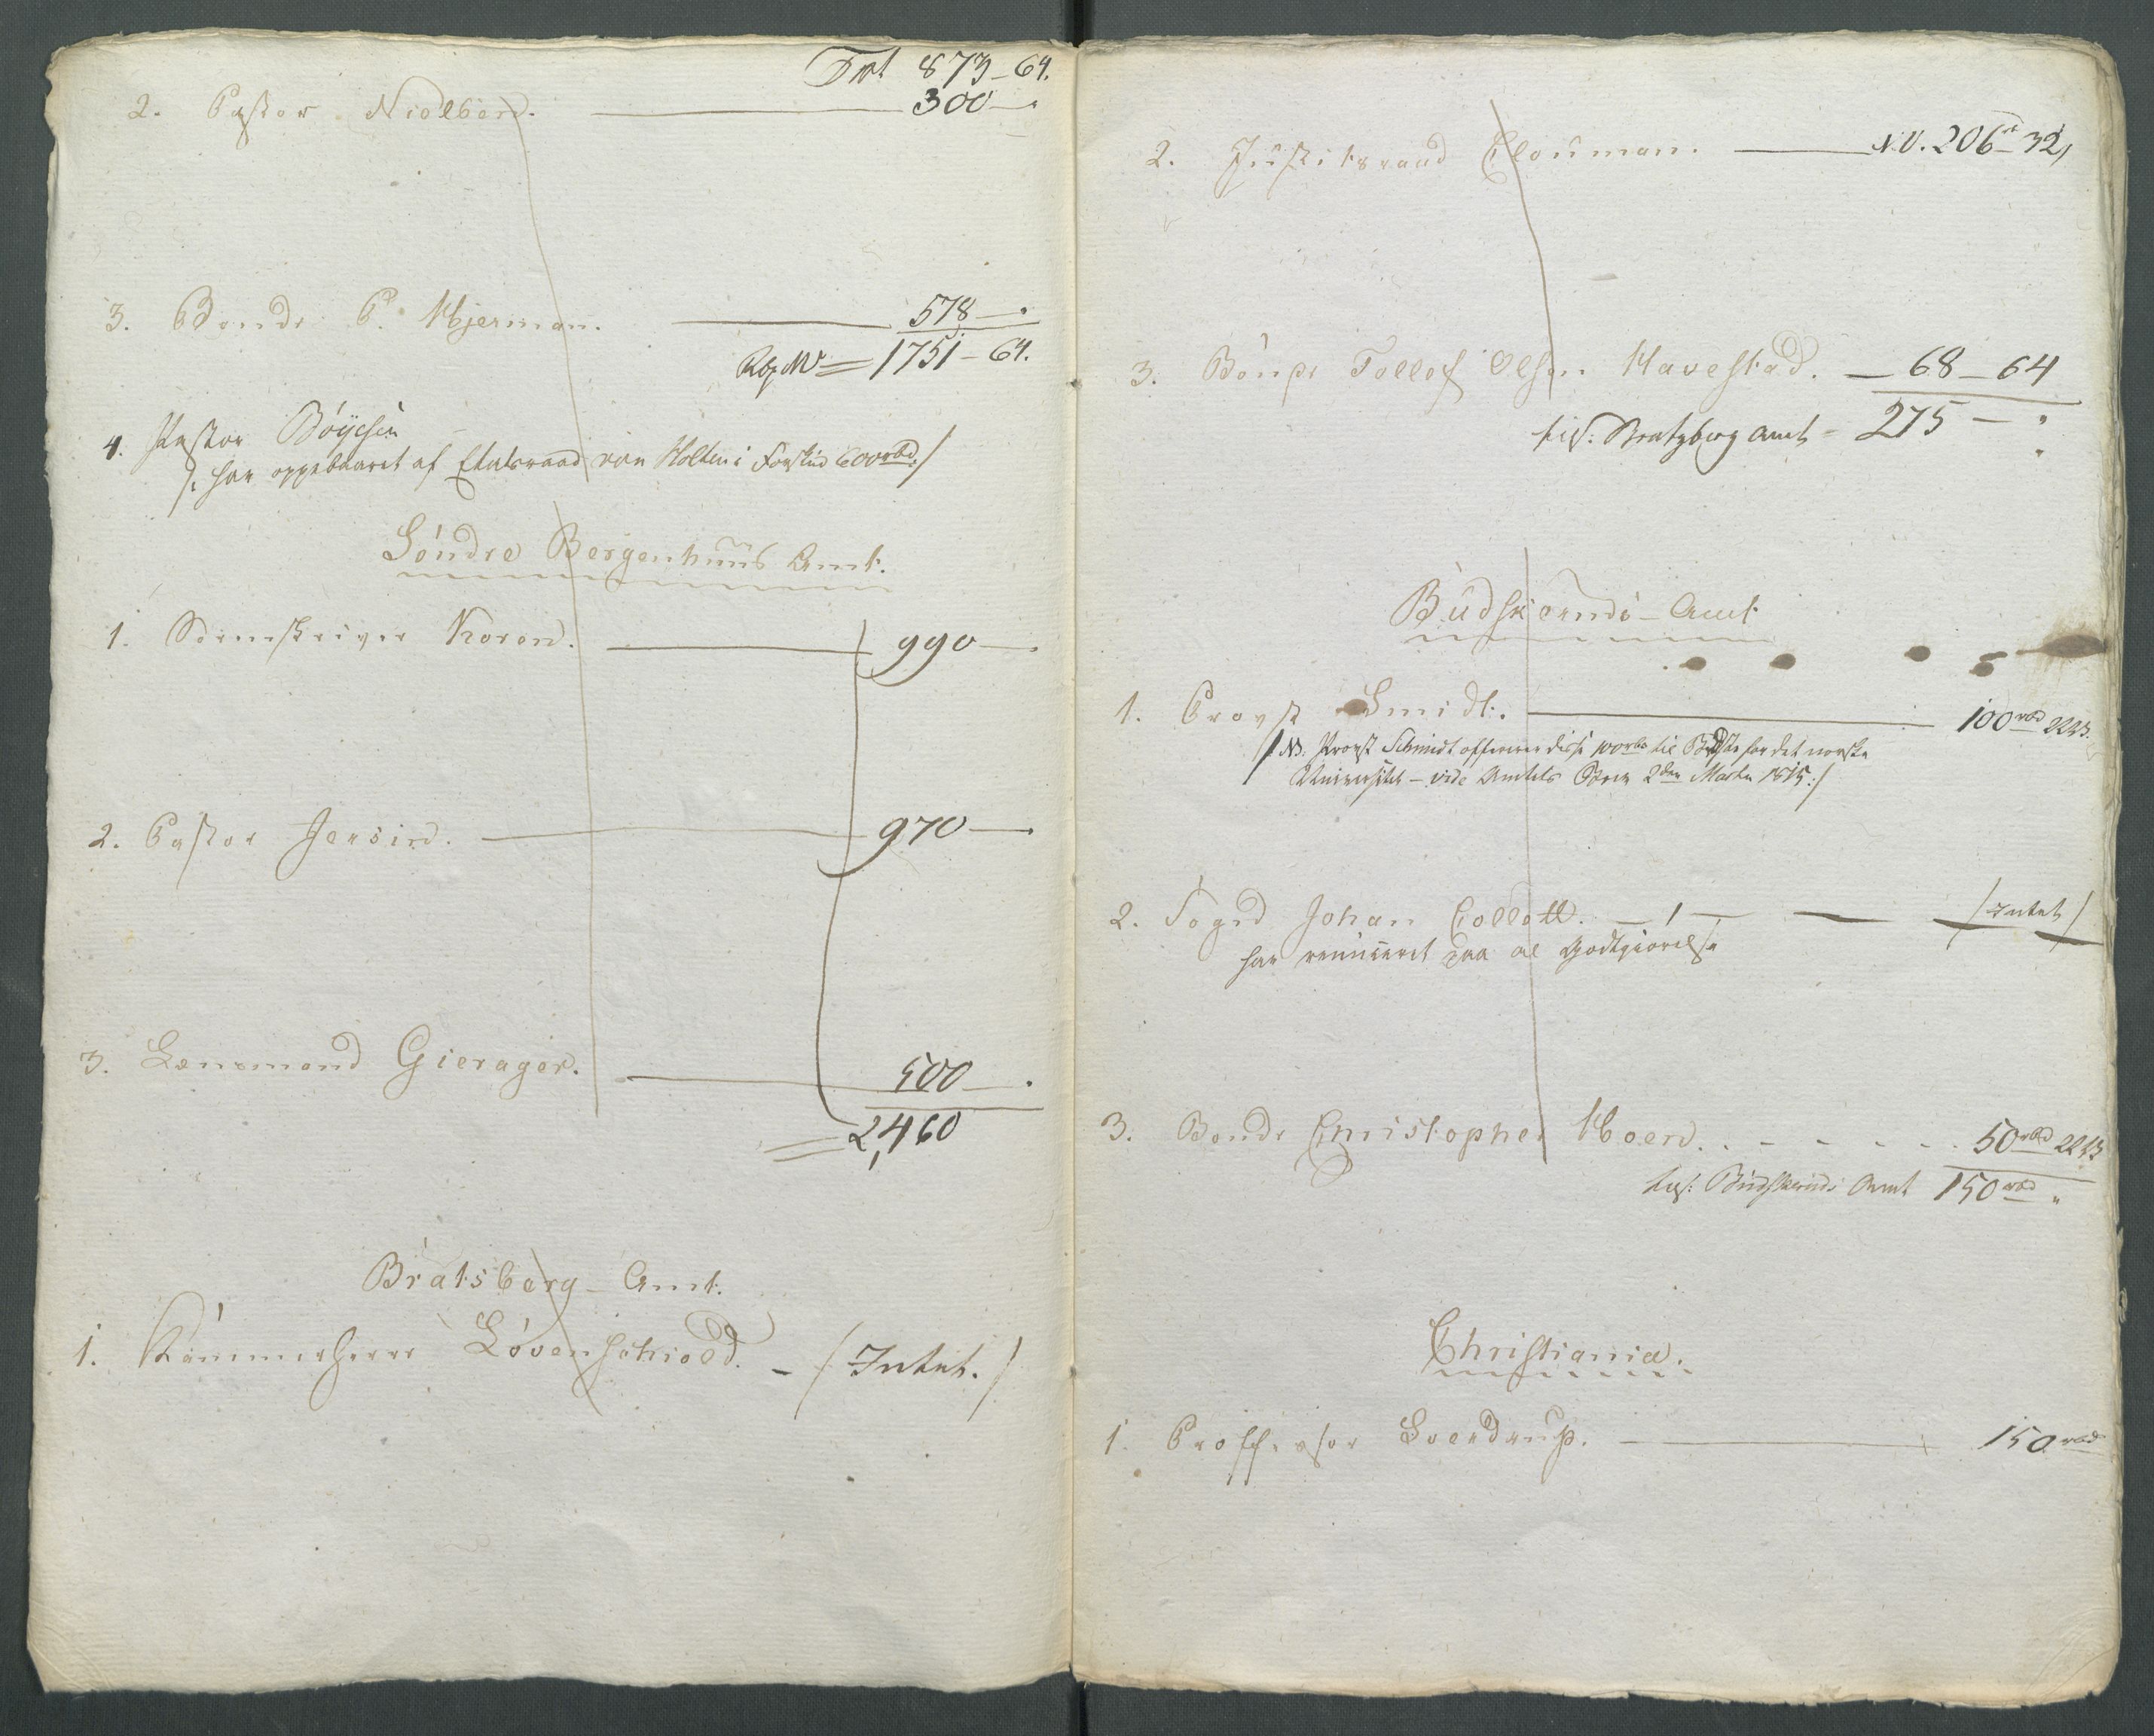 Trt 873-64.
2. Pastor Nielsen. 300-"
3. Bonde P. Hjerman. 578-"
RbgW = 1751-64.
4. Pastor Böÿesen
/: har oppebaaret af Etatsraad von Holten i Forskud 600rbd:/
Söndre Bergenhuus Amt.
1. Sorenskriver Koren. 990-.
2. Pastor Jersin. 970-.
3. Lænsmand Gierager. 500-.
= 2,460
Bratsberg-Amt.
1. Kammerherre Lövenschiold. - /: Intet. /
2. Justitsraad Clouman. N.V. 206rd 32,
3. Bonde Tollef Olsen Havestad. - 68-64
tils: Bratzberg Amt - 275-"
Budskeruds-Amt
1. Provst Smidt. 100rbd NV
/: NB. Provst Schmidt offererer disse 100rbd til Bedste for det norske
Universitet - vide Amtets Brev 2den Martii 1815:/
2. Foged Johan Collett. - / Intet /
har renunceret paa al Godtgiörelse
3. Bonde Christopher Hoen. 50rbd NV
tils: Budskeruds Amt 150rbd "
Christiania.
1. Proffessor Sverdrup. 150rbd